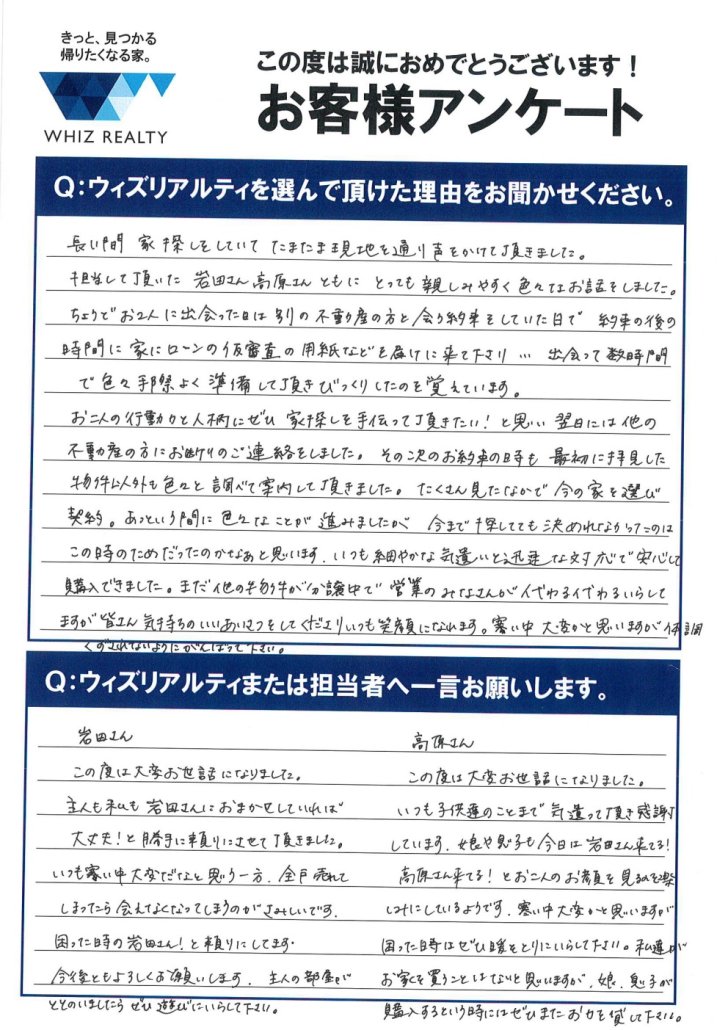 きっと、見つかる
帰りたくなる家。
WHIZ REALTY
この度は誠におめでとうございます！
お客様アンケート
Q：ウィズリアルティを選んで頂けた理由をお聞かせください。
長い間 家探しをしていて たまたま現地を通り声をかけて頂きました。
担当して頂いた 岩田さん 高原さん ともに とっても 親しみやすく 色々なお話をしました。
ちょうどお2人に出会った日は 別の 不動産の方と 会う約束をしていた日で 約束の後の
時間に 家にローンの仮審査の用紙などを届けに来て下さり … 出会って数時間
で色々手際よく 準備して頂きびっくりしたのを覚えています。
お二人の行動力と人柄にぜひ 家探しを手伝って頂きたい！と思い 翌日には他の
不動産の方にお断りのご連絡をしました。 その次のお約束の時も 最初に拝見した
物件以外も色々と調べて案内して頂きました。 たくさん見たなかで 今の家を選び
契約。あっという間に色々なことが 進みましたが 今まで 探してても 決めれなかったのは
この時のためだったのかなあと思います. いつも細やかな気遣いと迅速な対応で安心して
購入できました。まだ他の物件が分譲中で 営業のみなさんが代わる代わるいらして
ますが 皆さん 気持ちのいいあいさつをしてくださりいつも笑顔になれます。寒い中 大変かと思いますが 体調
くずされないようにがんばって下さい。
Q：ウィズリアルティまたは担当者へ一言お願いします。
岩田さん
この度は大変お世話になりました。
主人も私も 岩田さんにおまかせしていれば
大丈夫！と勝手に頼りにさせて頂きました。
いつも寒い中 大変だなと思う一方. 全戸売れて
しまったら会えなくなってしまうのがさみしいです.
困った時の岩田さん！と頼りにしてます.
今後ともよろしくお願いします. 主人の部屋が
ととのいましたら ぜひ遊びにいらして下さい。
高原さん
この度は大変お世話になりました。
いつも子供達のことまで 気遣って頂き感謝
しています. 娘や息子も今日は 岩田さん来てる！
高原さん来てる！とお二人のお顔を見るのを楽
しみにしているようです. 寒い中大変かと思いますが
困った時はぜひ暖をとりにいらして下さい。私達が
お家を買うことはないと思いますが. 娘. 息子が
購入するという時にはぜひまたお力を貸して下さい。